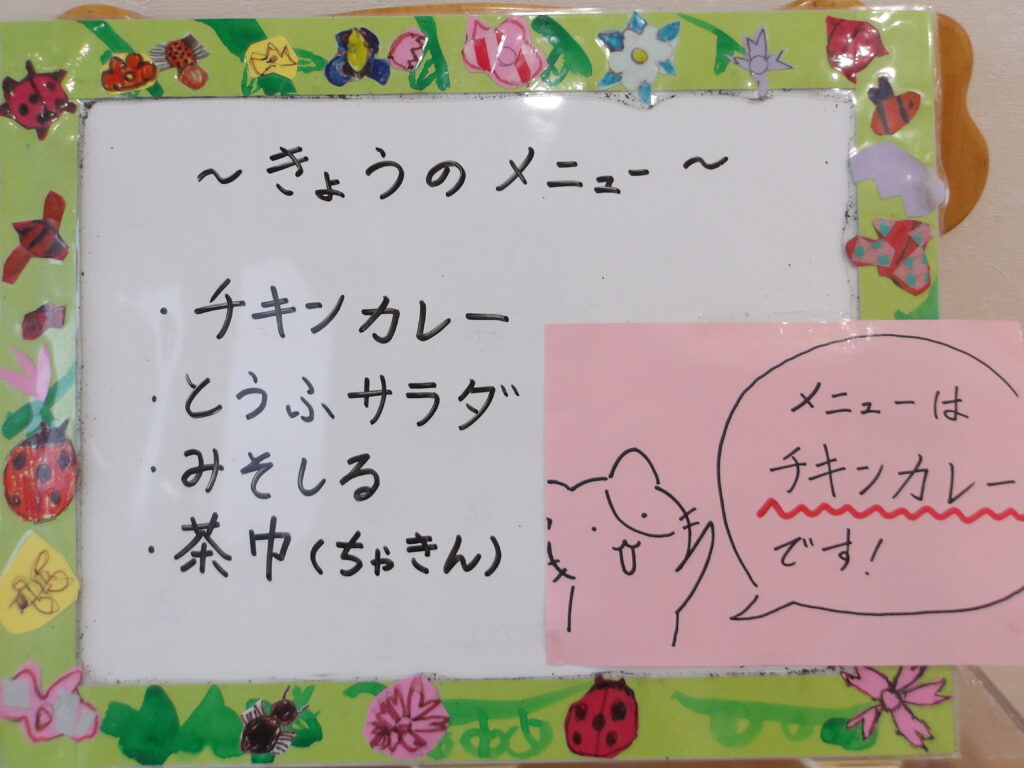 ～きょうのメニュー～
・チキンカレー
・とうふサラダ
・みそしる
・茶巾(ちゃきん)
メニューは
チキンカレー
です!